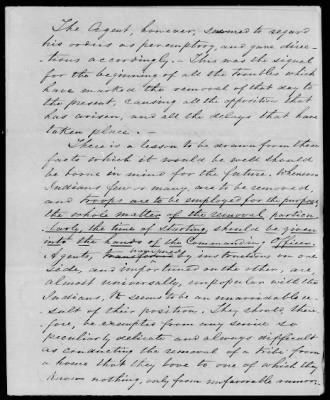 The Agent, however, seemed to regard
his orders as peremptory, and gave direc-
tions accordingly. - This was the signal
for the beginning of all the troubles which
have marked the removal of that day to
the present, causing all the opposition that
has arisen, and all the delays that have
taken place. -
There is a lesson to be drawn from these
facts which it would be well should
be borne in mind for the future. Whenever
Indians few or many, are to be removed,
and troops are to be employed for the purpose,
the whole matter of the removal, particu-
larly, the time of starting, should be given
into the hands of the Commanding Officer.
Agents, by instructions on one
side, and importuned on the other, are,
almost universally, unpopular with the
Indians, It seems to be an unavoidable re-
sult of their position. They should, there-
fore, be exempted from any service so
peculiarly delicate and always difficult
as conducting the removal of a tribe from
a home that they love to one of which they
know nothing, only from unfavorable rumor.